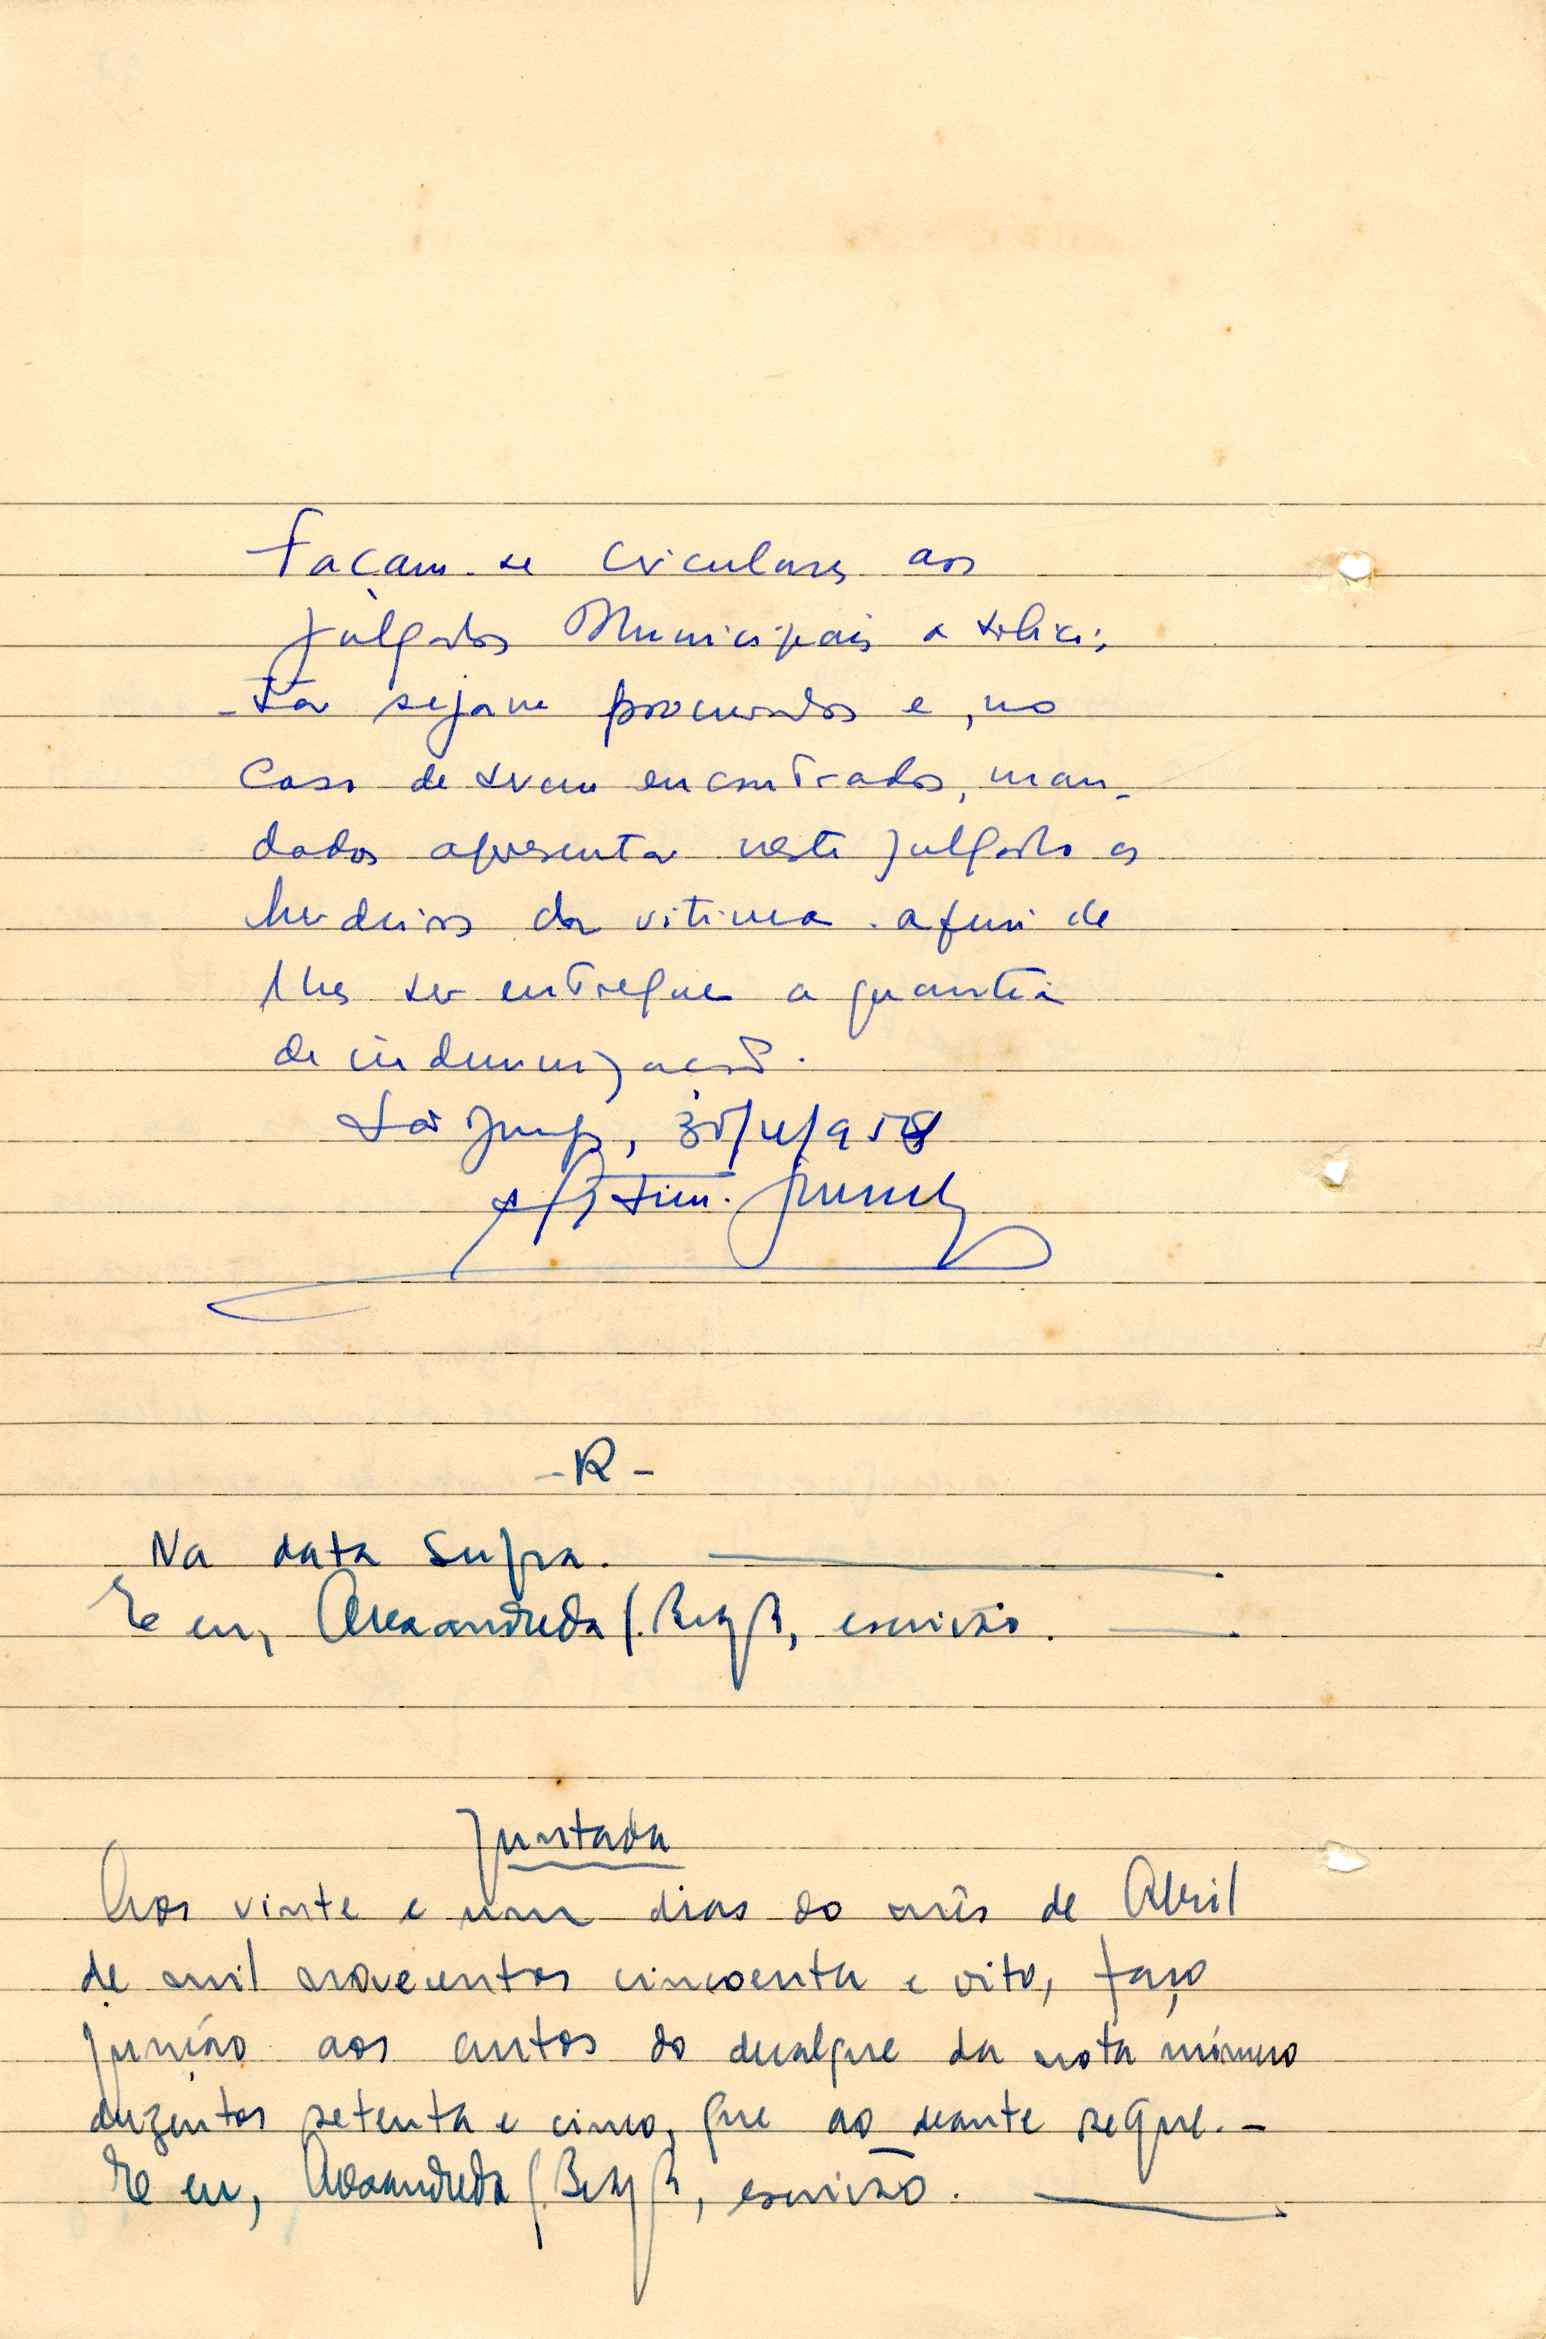 Façam-se circulares aos
Julgados Municipais a solici-
-tar sejam procurados e, no
caso de serem encontrados, man-
dados apresentar neste Julgado os
herdeiros da vitima. afim de
lhes ser entregue a quantia
de indemnização.
/4/958
-R-
Na data supra.
E eu, escrivão.
Juntada
Aos vinte e um dias do mês de Abril
de mil novecentos cincoenta e oito, faço
junção aos autos do duplicado da nota número
duzentos setenta e cinco, que ao deante segue.-
E eu, escrivão.